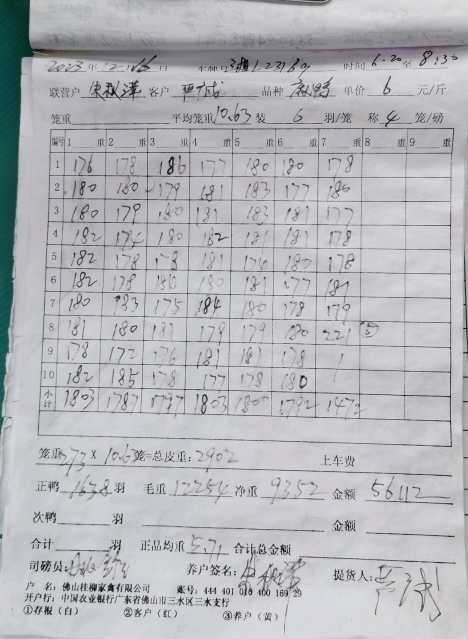 2023年12月16日 车牌号 时间6-20至8:30
联营户 客户 品种麻鸭 单价6元/斤
笼重 平均笼重10.63装6羽/笼 称4笼/磅
编号 1重 2重 3重 4重 5重 6重 7重 8重 9重
1 176 178 186 177 180 180 178
2 180 180 179 181 183 177 180
3 180 179 180 181 183 181 177
4 182 174 180 182 181 181 178
5 182 178 178 181 176 180 178
6 182 178 180 180 181 177 181
7 180 183 175 184 180 178 179
8 181 180 181 179 179 180 221 ⑤
9 178 172 176 181 181 178 /
10 182 185 178 177 178 180 /
小计 1803 1787 1797 1803 1800 1792 1472
笼重273×10.63笼=总皮重:2902 上车费
正鸭1638羽 毛重12254净重9352 金额56112
次鸭 羽 金额
合计 羽 正品均重5.71 合计总金额
司磅员: 养户签名: 提货人:
户 名:佛山桂柳家禽有限公司 账号:444 401 010 400 169 29
开户行:中国农业银行广东省佛山市三水区三水支行
①存根(白) ②客户(红) ③养户(黄)